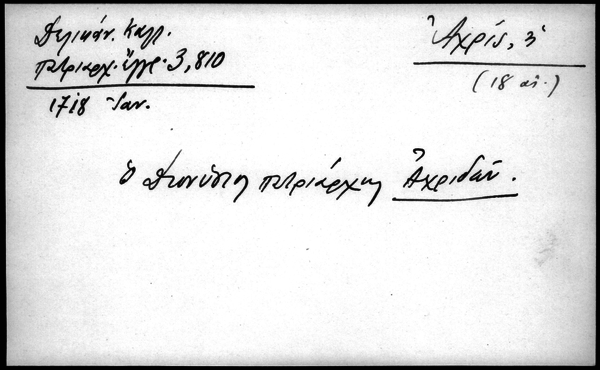 Δελικάν. Καλλ.
Πατριαρχ. Ἔγγρ. 3, 810
1718 Ἰαν.
Ἀχρίς, ἡ
(18 αἰ.)
ὁ Διονύσιος πατριάρχης Ἀχριδῶν.